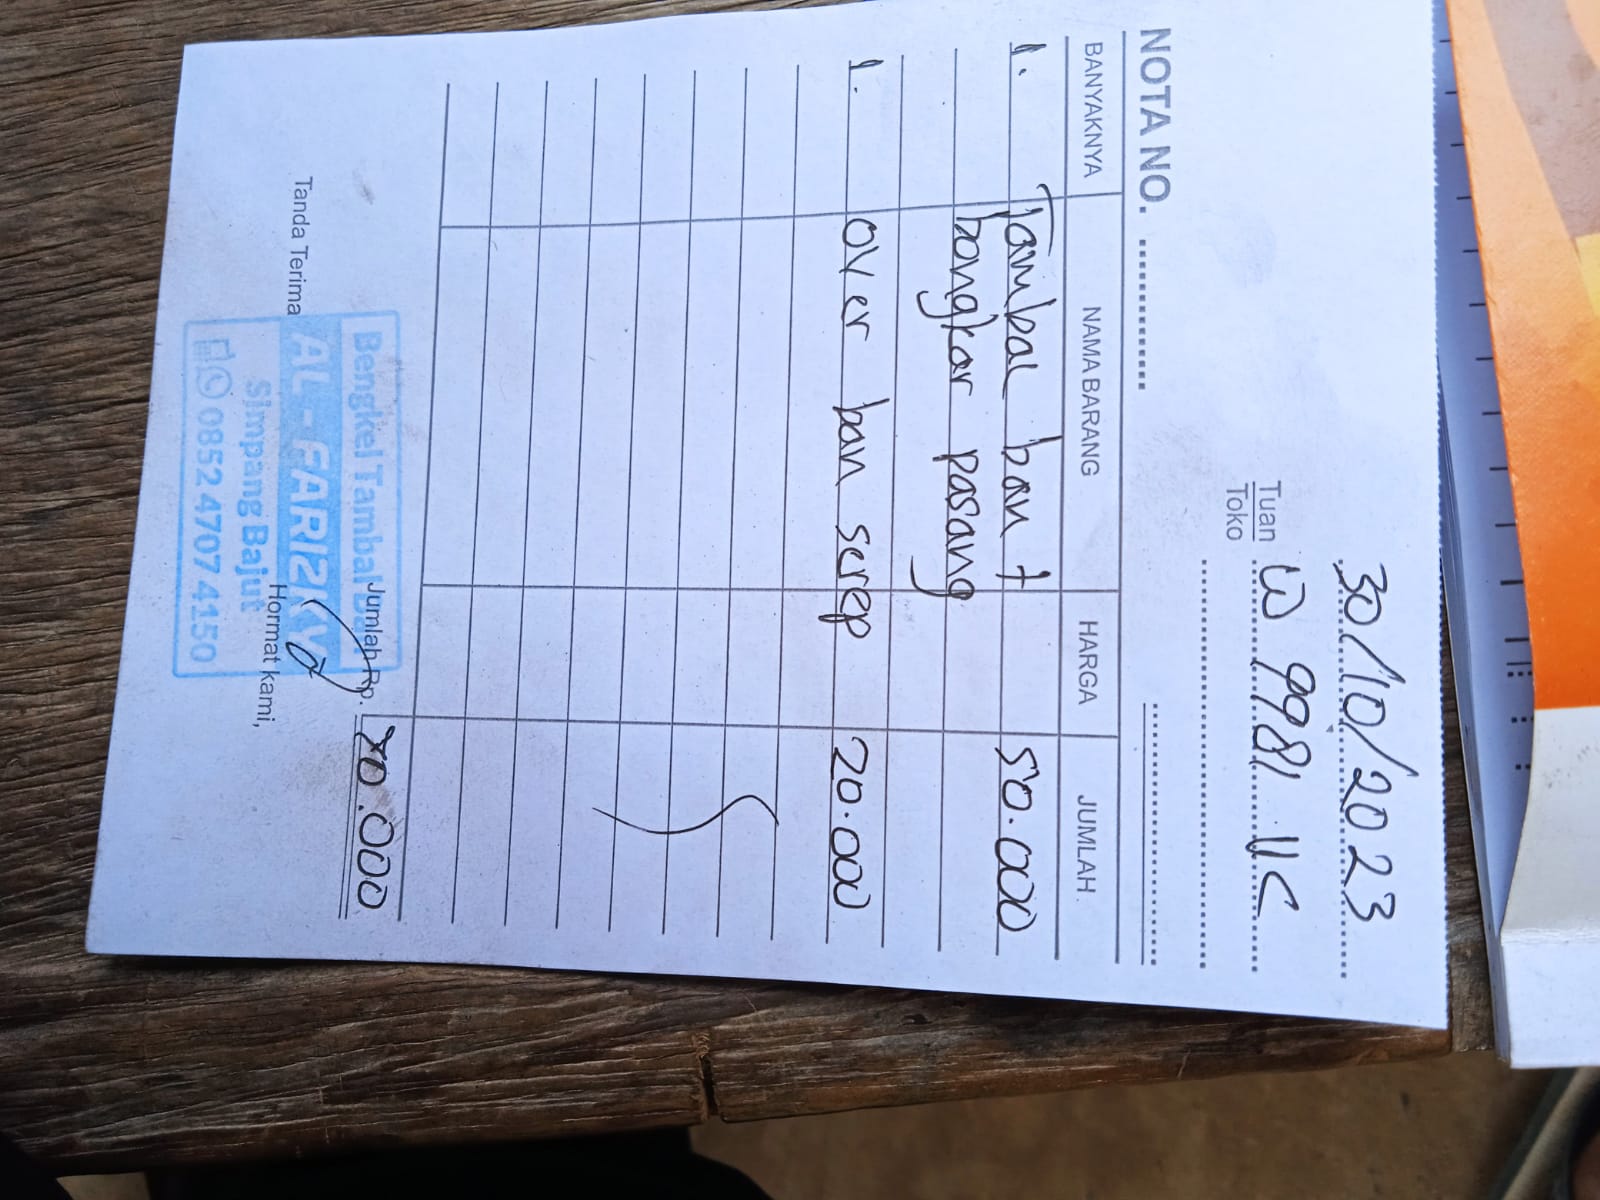 30/10/2023
Tuan W 9981 UC
Toko
NOTA NO.
BANYAKNYA NAMA BARANG HARGA JUMLAH
1. Tambal ban + 50.000
bongkar pasang
1. over ban screp 20.000
Jumlah Rp. 70.000
Tanda Terima Hormat kami,
Bengkel Tambal Ban
AL - FARIZKY
Simpang Bajut
0852 4707 4150